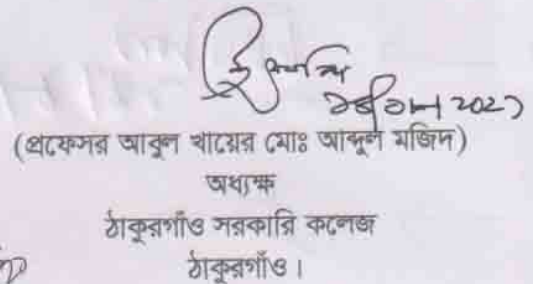 (প্রফেসর আবুল খায়ের মোঃ আব্দুল মজিদ)
অধ্যক্ষ
ঠাকুরগাঁও সরকারি কলেজ
ঠাকুরগাঁও।